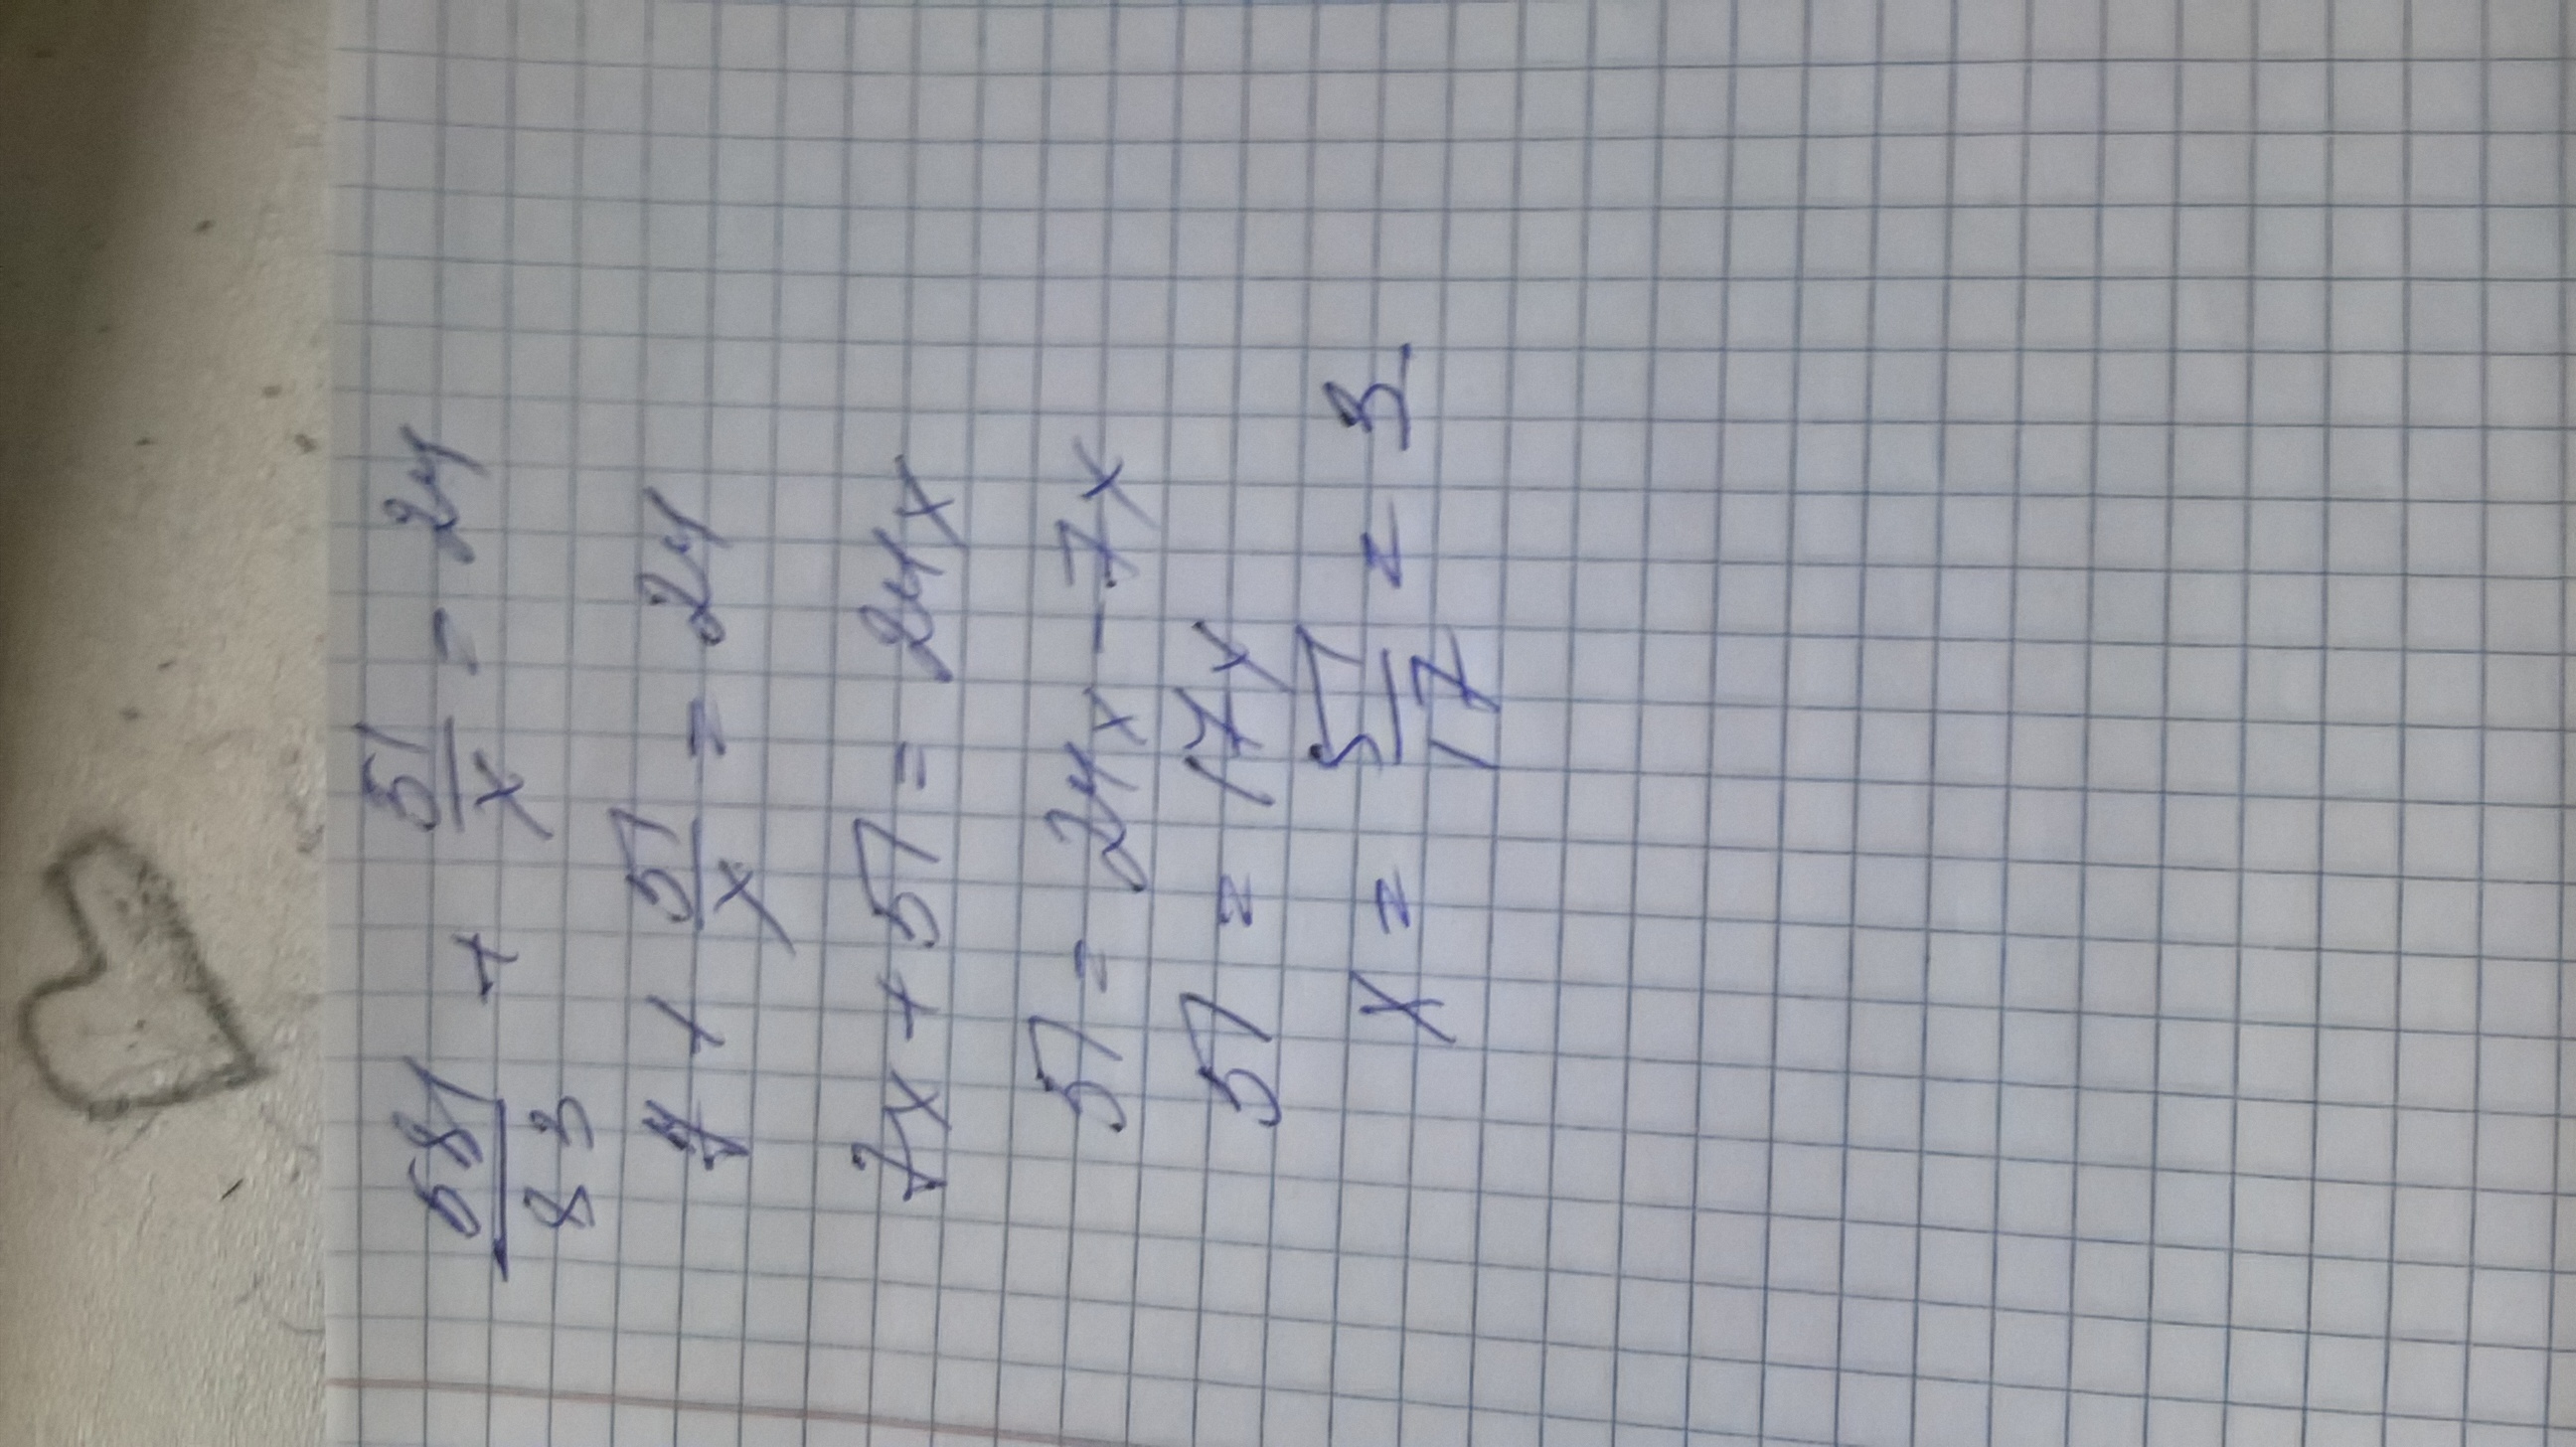 581/83 + 51/x = 24
7 + 51/x = 24
7x + 51 = 24x
51 = 24x - 7x
51 = 17x
x = 51/17 = 3